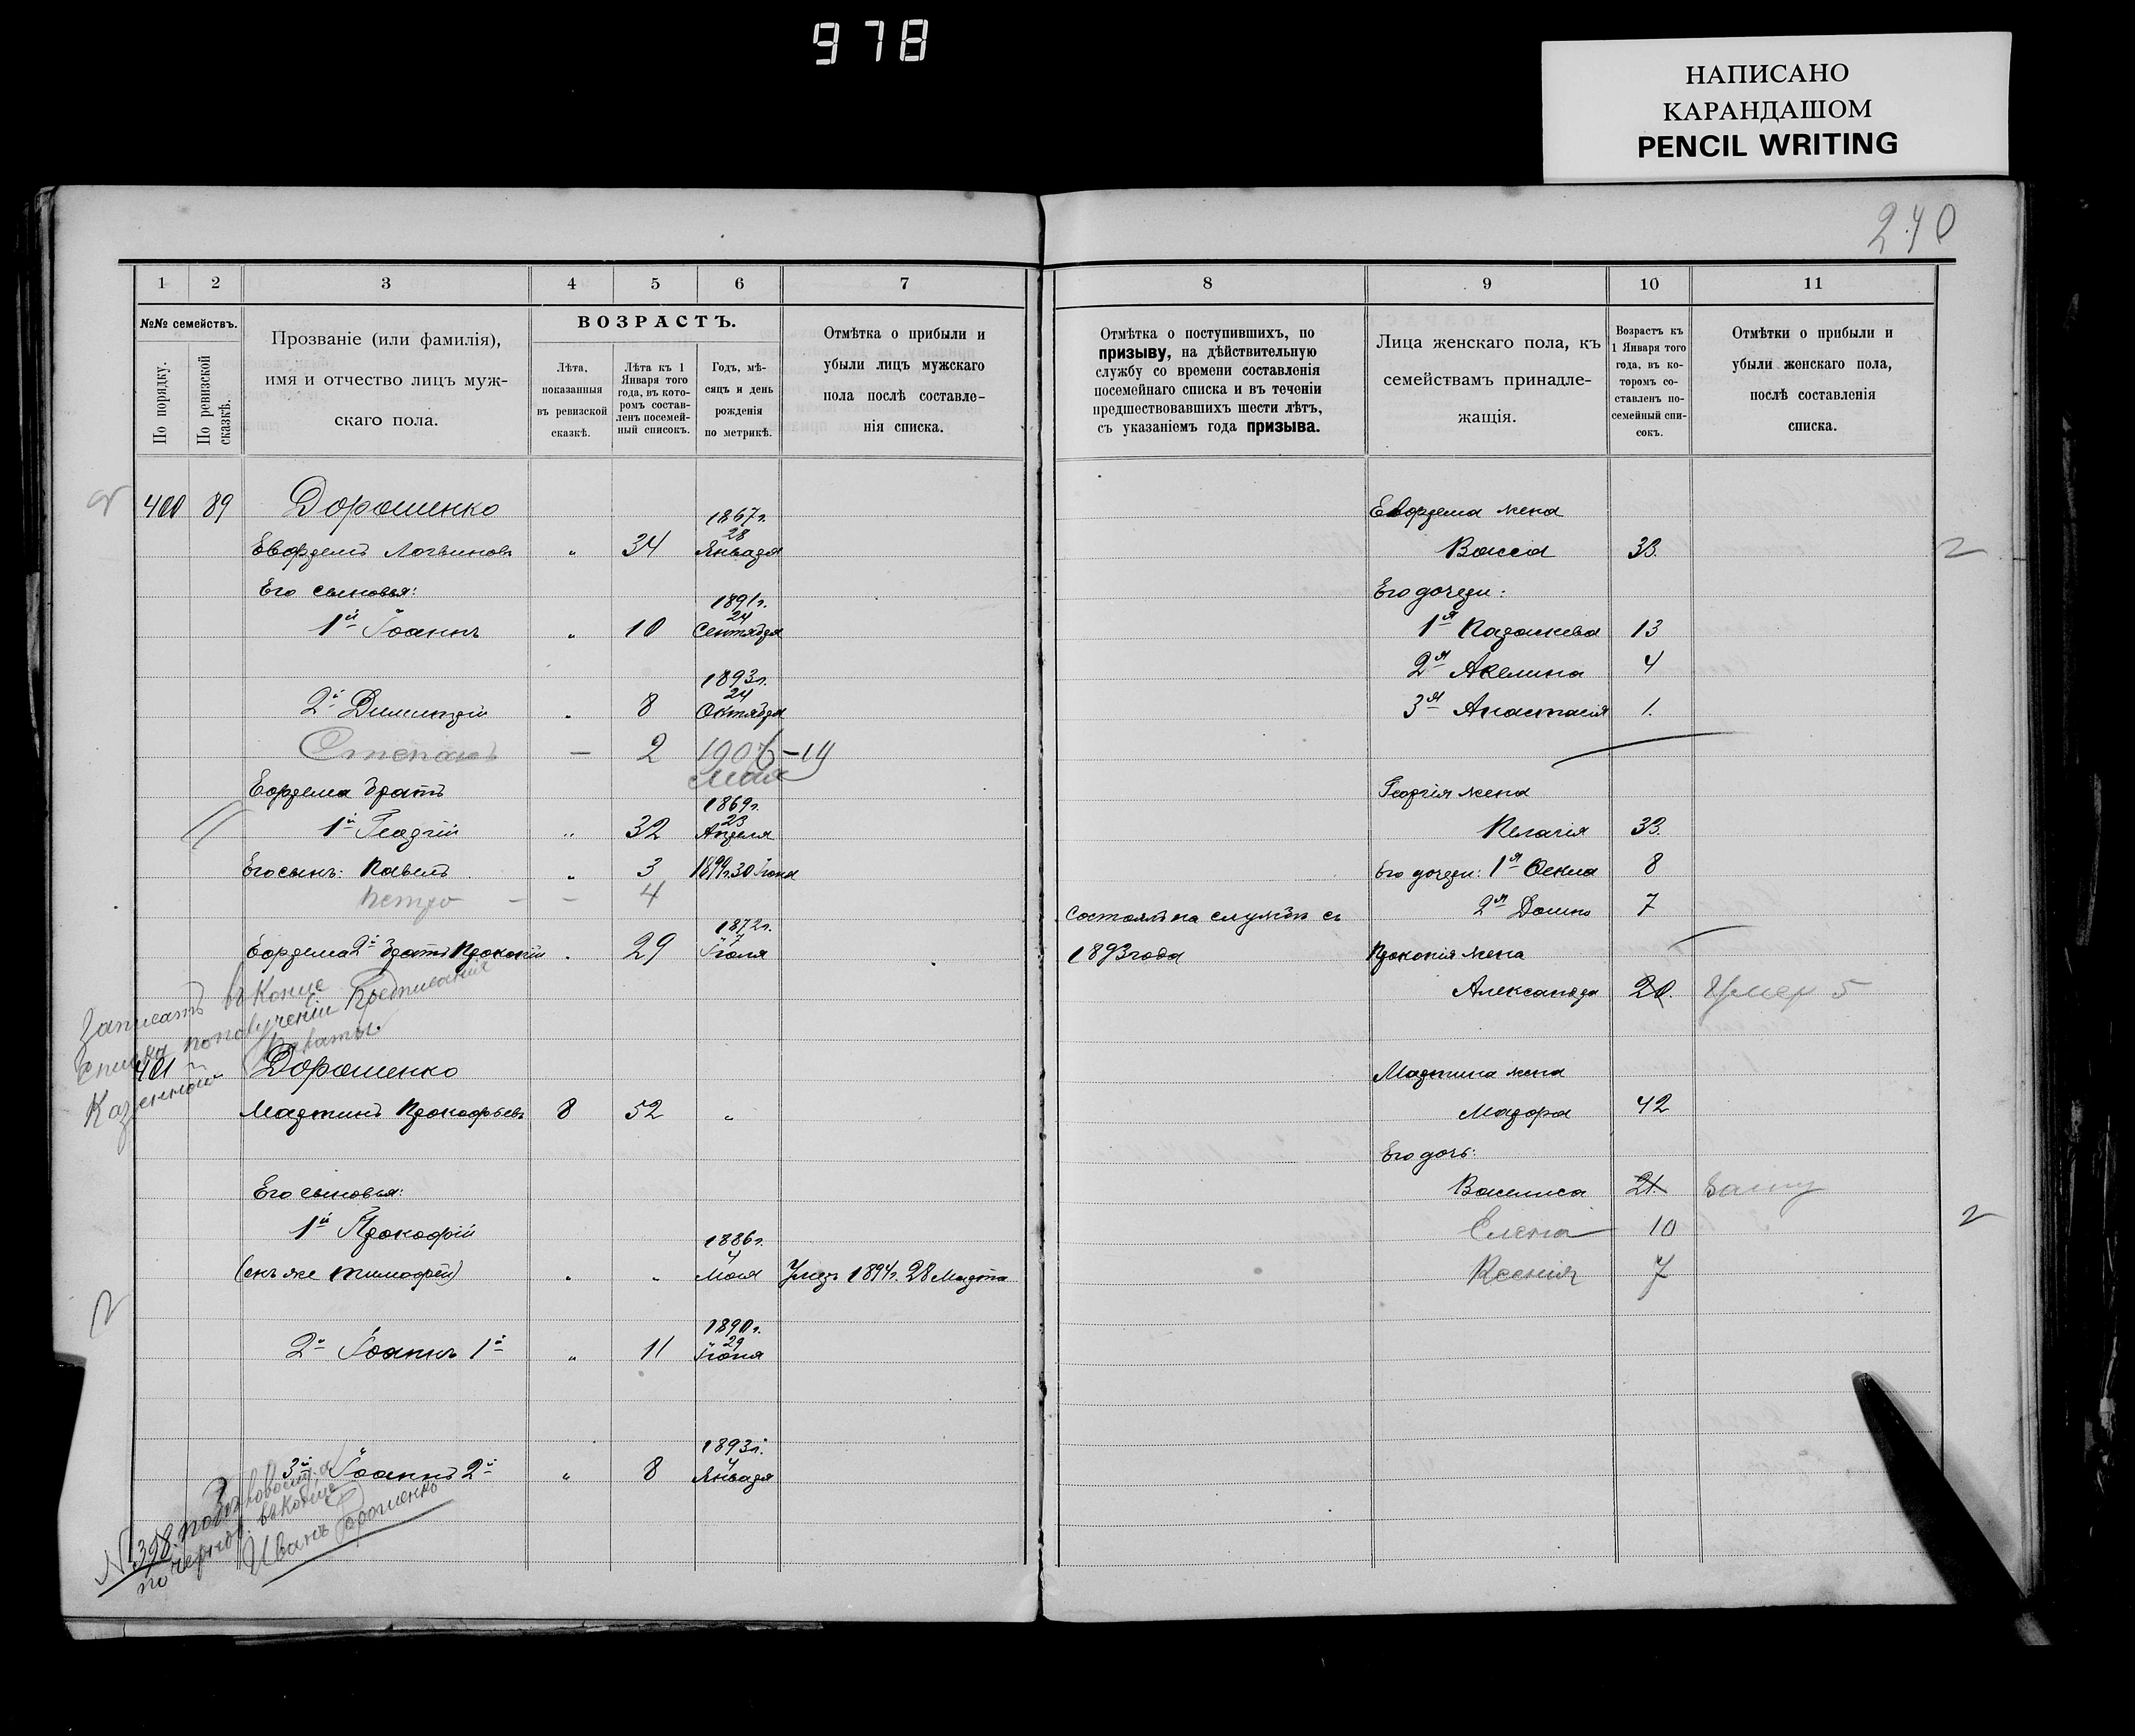 978
НАПИСАНО
КАРАНДАШОМ
PENCIL WRITING
240
1 2 3 4 5 6 7
№№ семействъ.
По порядку.
По ревизской сказкѣ.
Прозваніе (или фамилія),
имя и отчество лицъ муж-
скаго пола.
ВОЗРАСТЪ.
Лѣта,
показанныя
въ ревизской
сказкѣ.
Лѣта къ 1
Января того
года, въ кото-
ромъ состав-
ленъ посемей-
ный списокъ.
Годъ, мѣ-
сяцъ и день
рожденія
по метрикѣ.
Отмѣтка о прибыли и
убыли лицъ мужскаго
пола послѣ составле-
нія списка.
8 9 10 11
Отмѣтка о поступившихъ, по
призыву, на дѣйствительную
службу со времени составленія
посемейнаго списка и въ теченіи
предшествовавшихъ шести лѣтъ,
съ указаніемъ года призыва.
Лица женскаго пола, къ
семействамъ принадле-
жащія.
Возрастъ къ
1 Января того
года, въ ко-
торомъ со-
ставленъ по-
семейный спи-
сокъ.
Отмѣтки о прибыли и
убыли женскаго пола,
послѣ составленія
списка.
400 89 Дорошенко
1867г.
28
Евфремъ Логвиновъ " 34 Января
Его сыновья:
1891г.
24
1й Іоаннъ " 10 Сентября
1893г.
24
2й Димитрій " 8 Октября
Степанъ — 2 1906-19
мая
Ефрема братъ
1869г.
23
1й Георгій " 32 Апреля
Его сынъ: Павелъ " 3 1899г. 30 Іюня
Петро — — 4
1872г.
7
Ефрема 2й братъ Прокопій " 29 Іюля
Записать въ Конце
списка по полученіи Предписанія
Казенной Палаты.
401 Дорошенко
Мартинъ Прокофьевъ 8 52 "
Его сыновья:
1й Прокофій
1886г.
4
(онъ же Тимофей) " " Мая Умеръ 1894г. 28 Марта
1890г.
29
2й Іоаннъ 1й " 11 Іюня
1893г.
4
3й Іоаннъ 2й " 8 Января
N 398.
въ Конце
Иванъ Дорошенко
Состоялъ на службѣ съ
1893 года
Евфрема жена
Васса 33.
Его дочери:
1я Параскева 13
2я Акелина 4
3я Анастасія 1.
Георгія жена
Пелагія 33.
Его дочери: 1я Фекла 8
2я Домна 7
Прокопія жена
Александра 20. Умер 5
Мартина жена
Мавра 42
Его дочь:
Василиса 21. Замуж
Елена 10
Ксенія 7
2
2